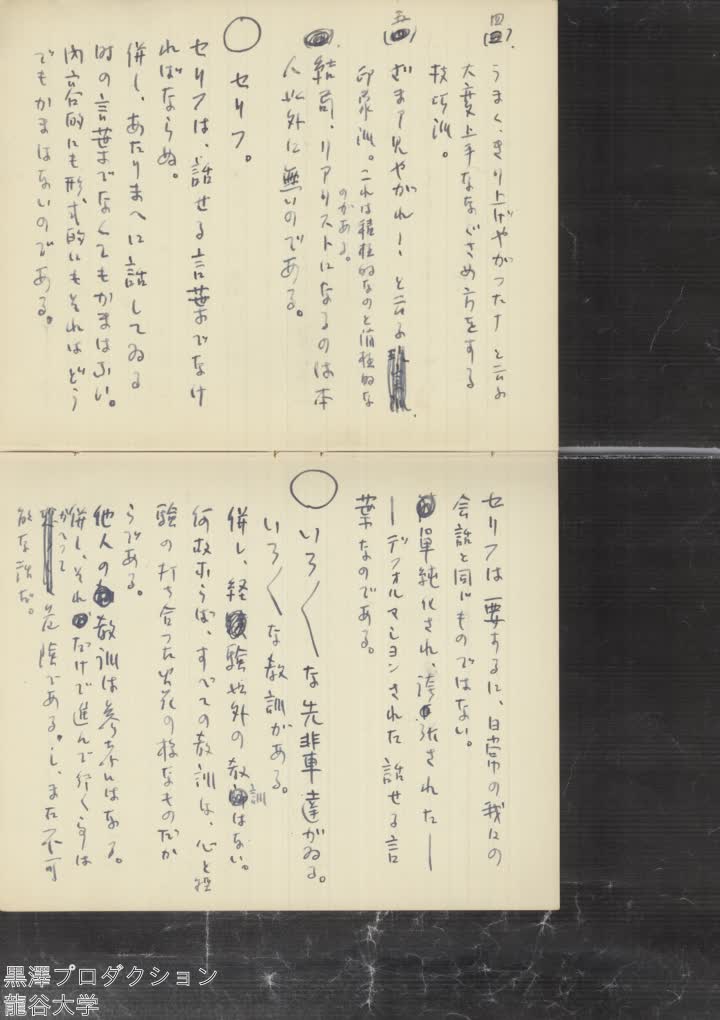 四
うまく、きり上げやがつた！と云ふ
大変上手ななぐさめ方をする
技巧派。
五
ざまア見やがれ！と云ふ
印象派。これは積極的なのと消極的な
のがある。
結局、リアリストになるのは本
人以外に無いのである。
○
セリフ。
セリフは、話せる言葉でなけ
ればならぬ。
併し、あたりまへに話してゐる
時の言葉でなくてもかまはない。
内容的にも形式的にもそれはどう
でもかまはないのである。
セリフは要するに、日常の我々の
会話と同じものではない。
単純化され、誇張された―
―デフォルマションされた話せる言
葉なのである。
○
いろ〱な先輩達がゐる。
いろ〱な教訓がある。
併し、経験以外の教訓はない。
何故ならば、すべての教訓は、心と経
験の打ち合つた火花の様なものだか
らである。
他人の教訓は参考にはなる。
併し、それだけで進んで行く事は
かへつて
危険である。し、また不可
能な話だ。
黒澤プロダクション
龍谷大学